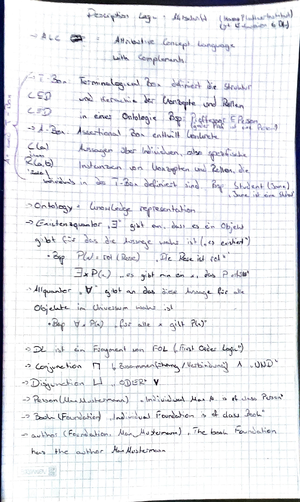 Description Logic - Abschnitt
→ ALC = Attributive Concept Language
with Complements
T-Box Terminological Box definiert die Struktur
C ⊑ D und Hierarchie der Konzepte und Rollen
C ≡ D in einer Ontologie Bsp: Professor ⊑ Person
→ A-Box Assertional Box enthält konkrete
C(a) Aussagen über Individuen, also spezifische
R(a,b) Instanzen von Konzepten und Rollen, die
in der T-Box definiert sind Bsp Student (Jane)
→ Ontology = knowledge representation
→ Existenzquantor „∃" gibt an, dass es ein Objekt
gibt für das die Aussage wahr ist („es existiert")
• Bsp P(x) = rot (Rose) „Die Rose ist rot"
∃x P(x) „es gibt min ein x, das P
→ Allquantor „∀" gibt an das diese Aussage für alle
Objekte im Universum wahr ist
• Bsp ∀x P(x) „für alle x gilt P(x)"
→ DL ist ein Fragment von FOL („First Order Logic")
→ Conjunction ⊓ ∧ „UND"
→ Disjunction ⊔ „ODER" ∨
→ Person (Max Mustermann) „Individual Max M. is of class Person"
→ Book (Foundation) „Individual Foundation is of class Book"
→ author (Foundation, Max Mustermann) „The book Foundation
has the author Max Mustermann